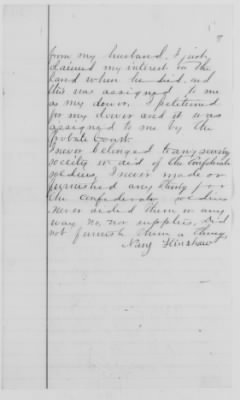 8
from my husband. I just
claimed my interest in the
land when he died, and
this was assigned to me
as my dower. I petitioned
for my dower and it was
assigned to me by the
probate Court.
I never belonged to any sewing
society in aid of the Confederate
soldiers, I never made or
furnished any thing for
the Confederate soldiers
never aided them in any
way, no, nor supplies. Did
not furnish them a thing.
Nancy Hinshaw